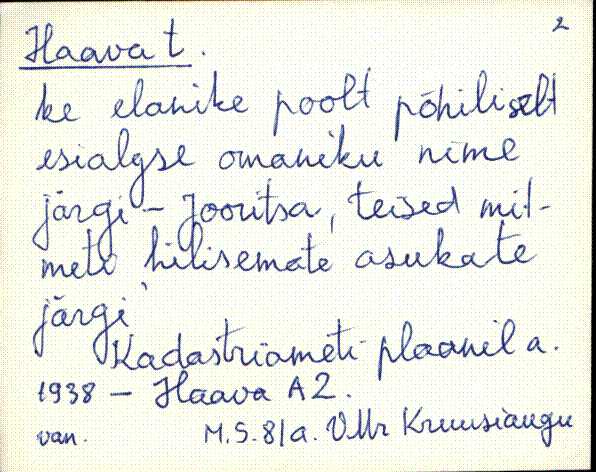 2
Haava t.
ke elanike poolt põhiliselt
esialgse omaniku nime
järgi – Jooritsa, teised mit-
mete hilisemate asukate
järgi.
Kadastriameti plaanil a.
1938 – Haava A2.
van. M.S. 8/a. VMr Kruusiaugu